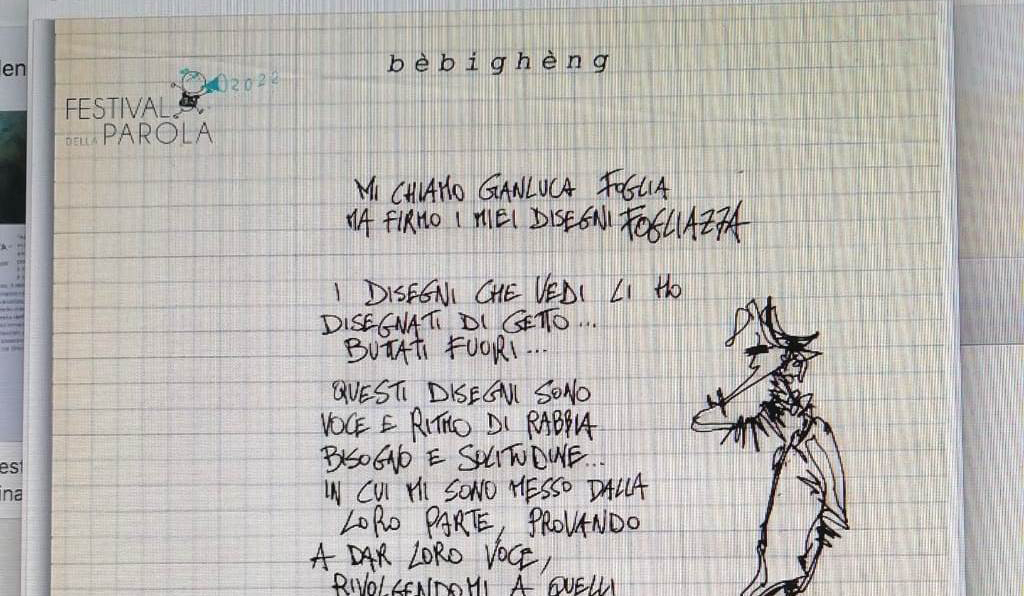 bèbighèng
2022
FESTIVAL
DELLA PAROLA
MI CHIAMO GANLUCA FOGLIA
MA FIRMO I MIEI DISEGNI FOGLIAZZA
I DISEGNI CHE VEDI LI HO
DISEGNATI DI GETTO...
BUTTATI FUORI...
QUESTI DISEGNI SONO
VOCE E RITMO DI RABBIA
BISOGNO E SOLITUDINE...
IN CUI MI SONO MESSO DALLA
LORO PARTE, PROVANDO
A DAR LORO VOCE,
RIVOLGENDOMI A QUELLI